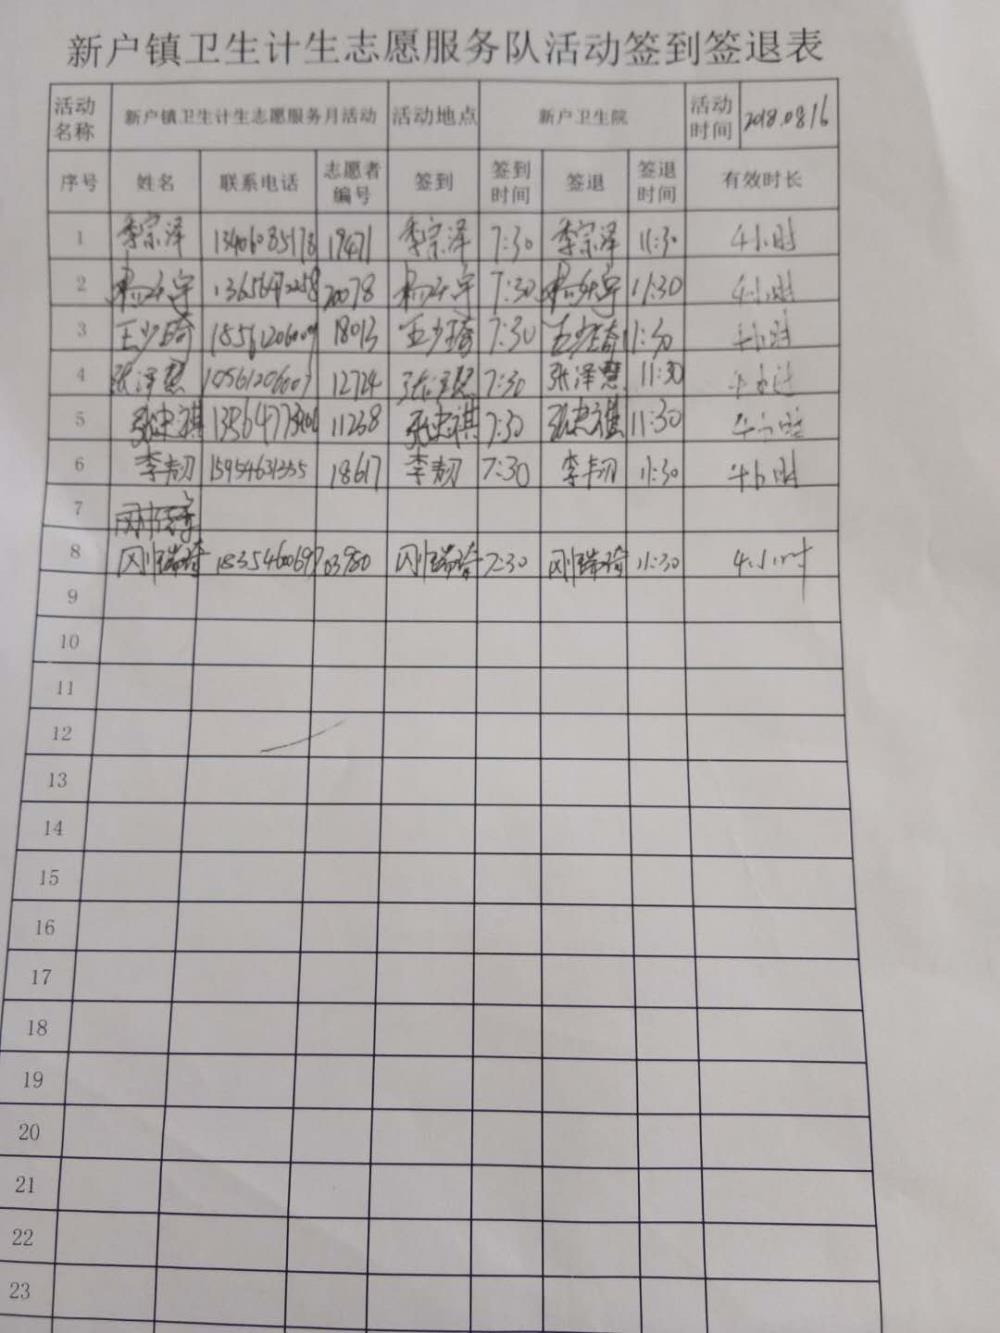 新户镇卫生计生志愿服务队活动签到签退表
活动名称 新户镇卫生计生志愿服务月活动 活动地点 新户卫生院 活动时间 2018.08.16
序号 姓名 联系电话 志愿者编号 签到 签到时间 签退 签退时间 有效时长
1 李宗泽 13406085178 19471 李宗泽 7:30 李宗泽 11:30 4小时
2 20078 7:30 11:30 4小时
3 王少琦 18561206009 18013 王少琦 7:30 王少琦 11:30 4小时
4 张泽慧 12724 张泽慧 7:30 张泽慧 11:30
5 张忠祺 11238 张忠祺 7:30 张忠祺 11:30
6 李韧 15954631355 18617 李韧 7:30 李韧 11:30 4小时
7
8 闪瑞琦 03980 闪瑞琦 7:30 闪瑞琦 11:30 4小时
9
10
11
12
13
14
15
16
17
18
19
20
21
22
23